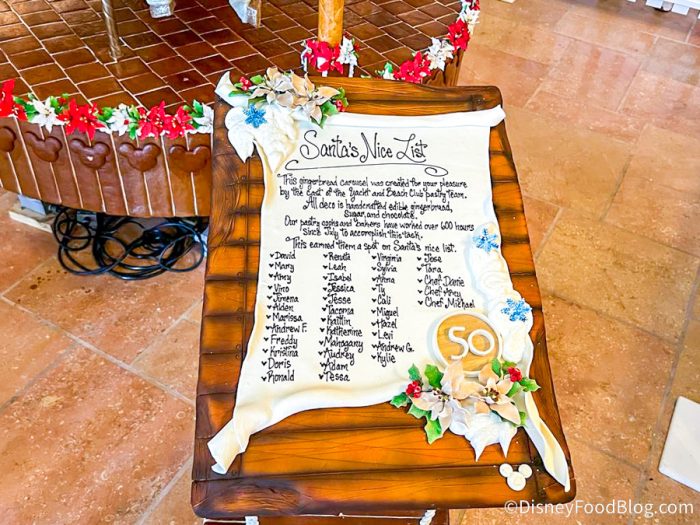 Santa's Nice List
This gingerbread carousel was created for your pleasure
by the cast of the Yacht and Beach Club pastry team.
All deco is handcrafted edible gingerbread,
Sugar, and chocolate.
Our pastry cooks and bakers have worked over 600 hours
since July to accomplish this task.
This earned them a spot on Santa's nice list.
David
Mary
Amy
Vino
Jimena
Alden
Marissa
Andrew F.
Freddy
Kristina
Doris
Ronald
Renata
Leah
Isabel
Jessica
Jesse
Tacoma
Kaitlin
Katherine
Mahogany
Audrey
Adam
Tessa
Virginia
Sylvia
Anna
Ty
Cali
Miguel
Hazel
Levi
Andrew G.
Kylie
Jose
Tara
Chef Danie
Chef
Chef Michael
50
©DisneyFoodBlog.com